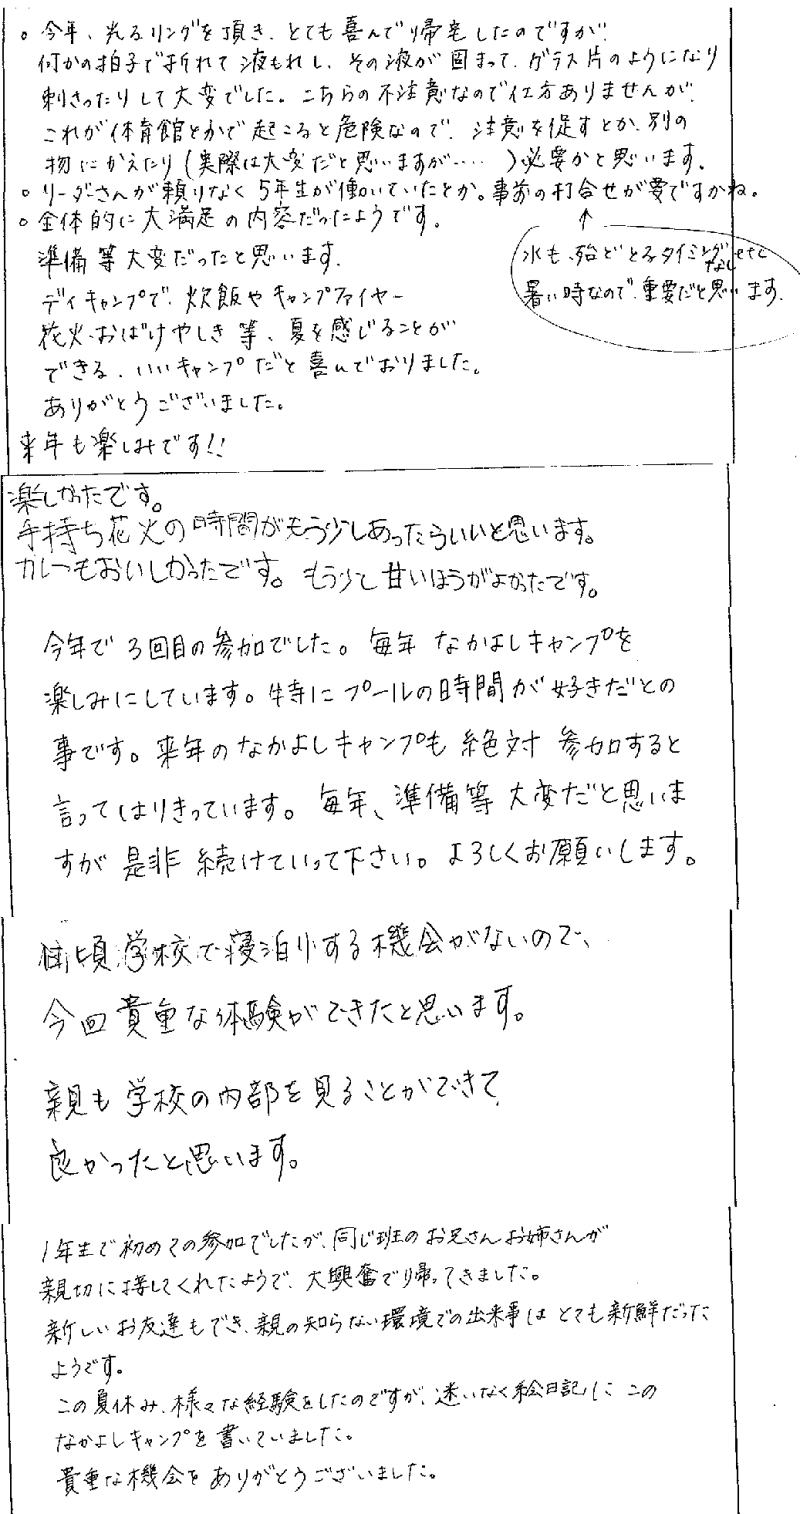 ○ 今年、光るリングを頂き、とても喜んで帰宅したのですが、
何かの拍子で折れて液もれし、その液が固まって、ガラス片のようになり
刺さったりして大変でした。こちらの不注意なので仕方ありませんが、
これが体育館とかで起こると危険なので、注意を促すとか、別の
物にかえたり(実際は大変だと思いますが……)必要かと思います。
○ リーダーさんが頼りなく5年生が働いていたとか。事前の打合せが要ですかね。
○ 全体的に大満足の内容だったようです。
水も、殆どとるタイミングなしetc
暑い時なので、重要だと思います。
準備等大変だったと思います。
デイキャンプで、炊飯やキャンプファイヤー
花火、おばけやしき等、夏を感じることが
できる、いいキャンプだと喜んでおりました。
ありがとうございました。
来年も楽しみです!!
楽しかったです。
手持ち花火の時間がもう少しあったらいいと思います。
カレーもおいしかったです。もう少し甘いほうがよかったです。
今年で3回目の参加でした。毎年なかよしキャンプを
楽しみにしています。特にプールの時間が好きだとの
事です。来年のなかよしキャンプも絶対参加すると
言ってはりきっています。毎年、準備等大変だと思いま
すが是非続けていって下さい。よろしくお願いします。
日頃学校で寝泊りする機会がないので、
今回貴重な体験ができたと思います。
親も学校の内部を見ることができて
良かったと思います。
1年生で初めての参加でしたが、同じ班のお兄さんお姉さんが
親切に接してくれたようで、大興奮で帰ってきました。
新しいお友達もでき、親の知らない環境での出来事はとても新鮮だった
ようです。
この夏休み、様々な経験をしたのですが、迷いなく絵日記にこの
なかよしキャンプを書いていました。
貴重な機会をありがとうございました。